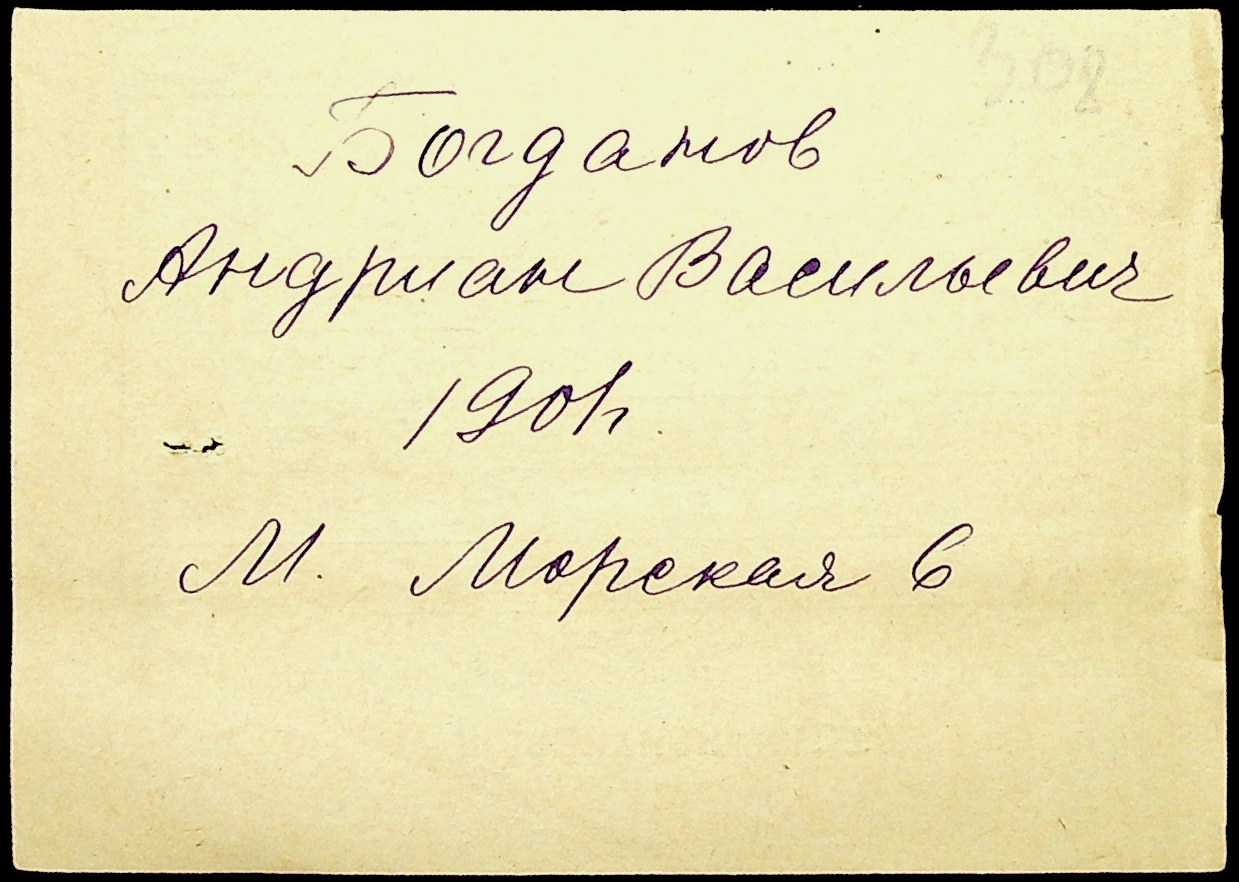 308
Богданов
Андриан Васильевич
1901г.
М. Морская 6